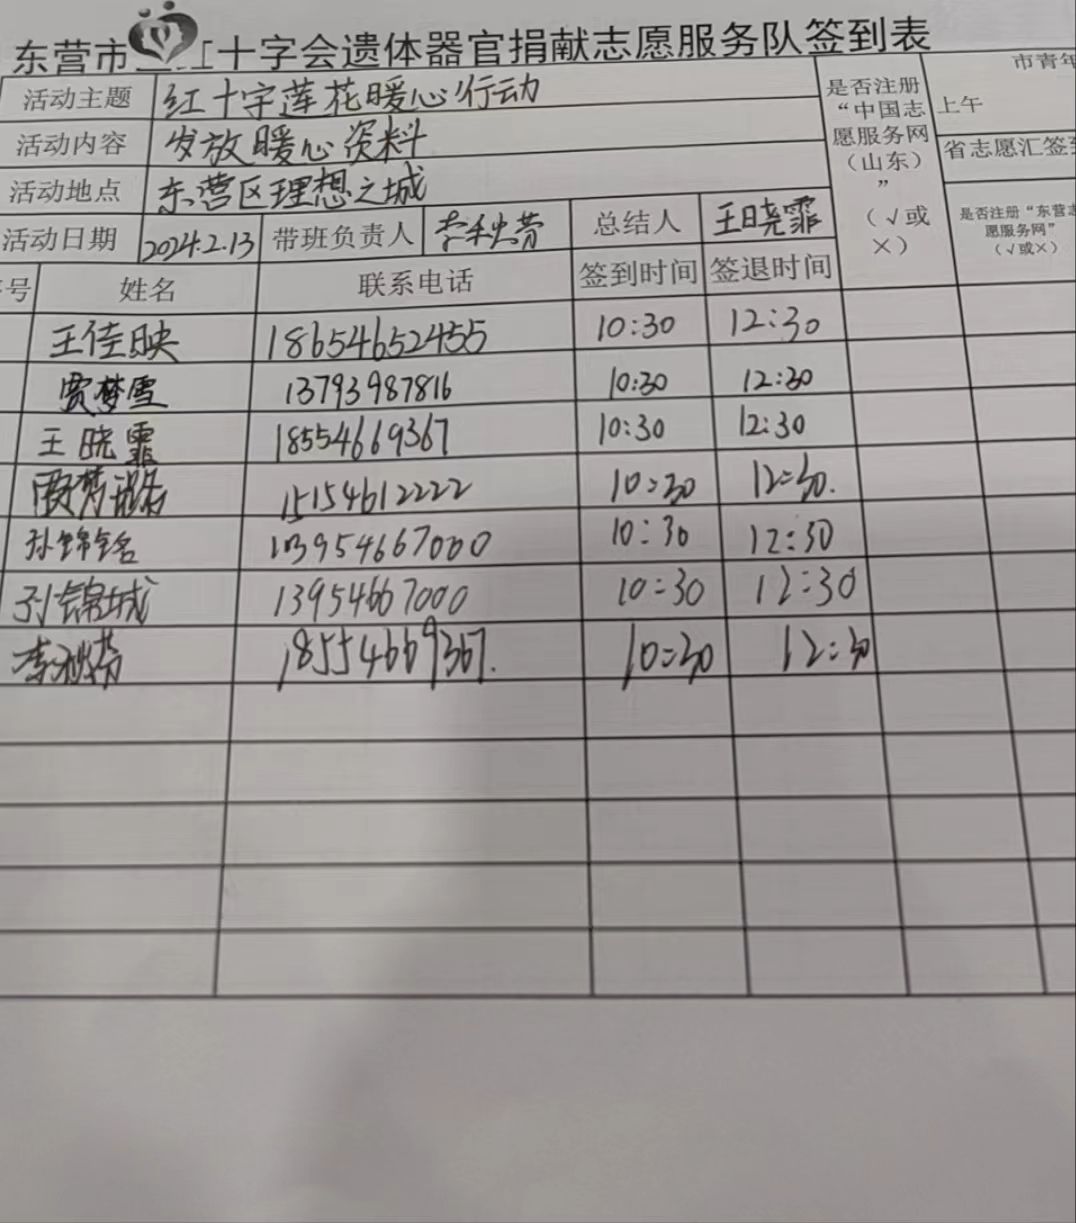 东营市 红十字会遗体器官捐献志愿服务队签到表
活动主题 红十字莲花暖心行动
活动内容 发放暖心资料
活动地点 东营区理想之城
活动日期 2024.2.13 带班负责人 李秋芳 总结人 王晓霏
是否注册“中国志愿服务网（山东）”（√或×）
市青年
上午
省志愿汇签到
是否注册“东营志愿服务网”（√或×）
序号 姓名 联系电话 签到时间 签退时间
王佳映 18654652455 10:30 12:30
贾梦雪 13793987816 10:30 12:30
王晓霏 18554669367 10:30 12:30
15154612222 10:30 12:30.
孙锦铭 13954667000 10:30 12:30
孙锦城 13954667000 10:30 12:30
李秋芳 18554669367. 10:30 12:30